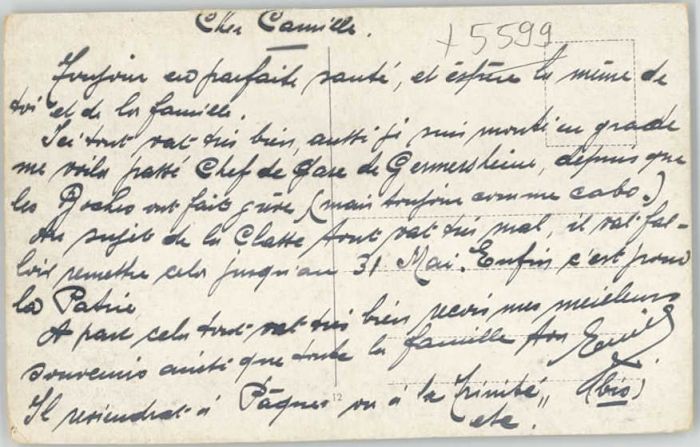 Cher Camille.
+5599
Toujour en parfaite santé, et éspère la même de
toi et de la famille.
Ici tout vat très bien, aussi je suis monté en grade
me voila passé Chef de Gare de Germersheim, depuis que
les Boches ont fait grève, (mais toujour comme cabo.)
Au sujet de la Classe tout vat très mal, il vat fal-
loir remettre cela jusqu'au 31 Mai. Enfin c'est pour
la Patrie
A part cela tout vat très bien recois mes meileurs
souvenirs ainsi que toute la famille ton Emile
Il reviendrat à Pâques ou à la Trinité,, (bis)
etc.
12